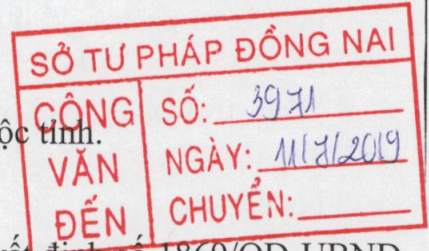 SỞ TƯ PHÁP ĐỒNG NAI
CÔNG VĂN ĐẾN
SỐ: 3971
NGÀY: 11/7/2019
CHUYỂN:
ộc tỉnh.
định số 1869/QĐ-UBND